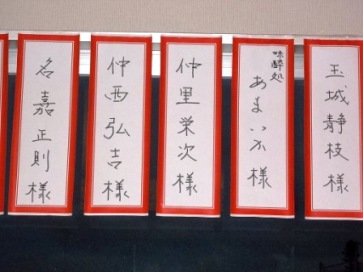 玉城静枝様
味酔処
あまいふ様
仲里栄次様
仲西弘吉様
名嘉正則様